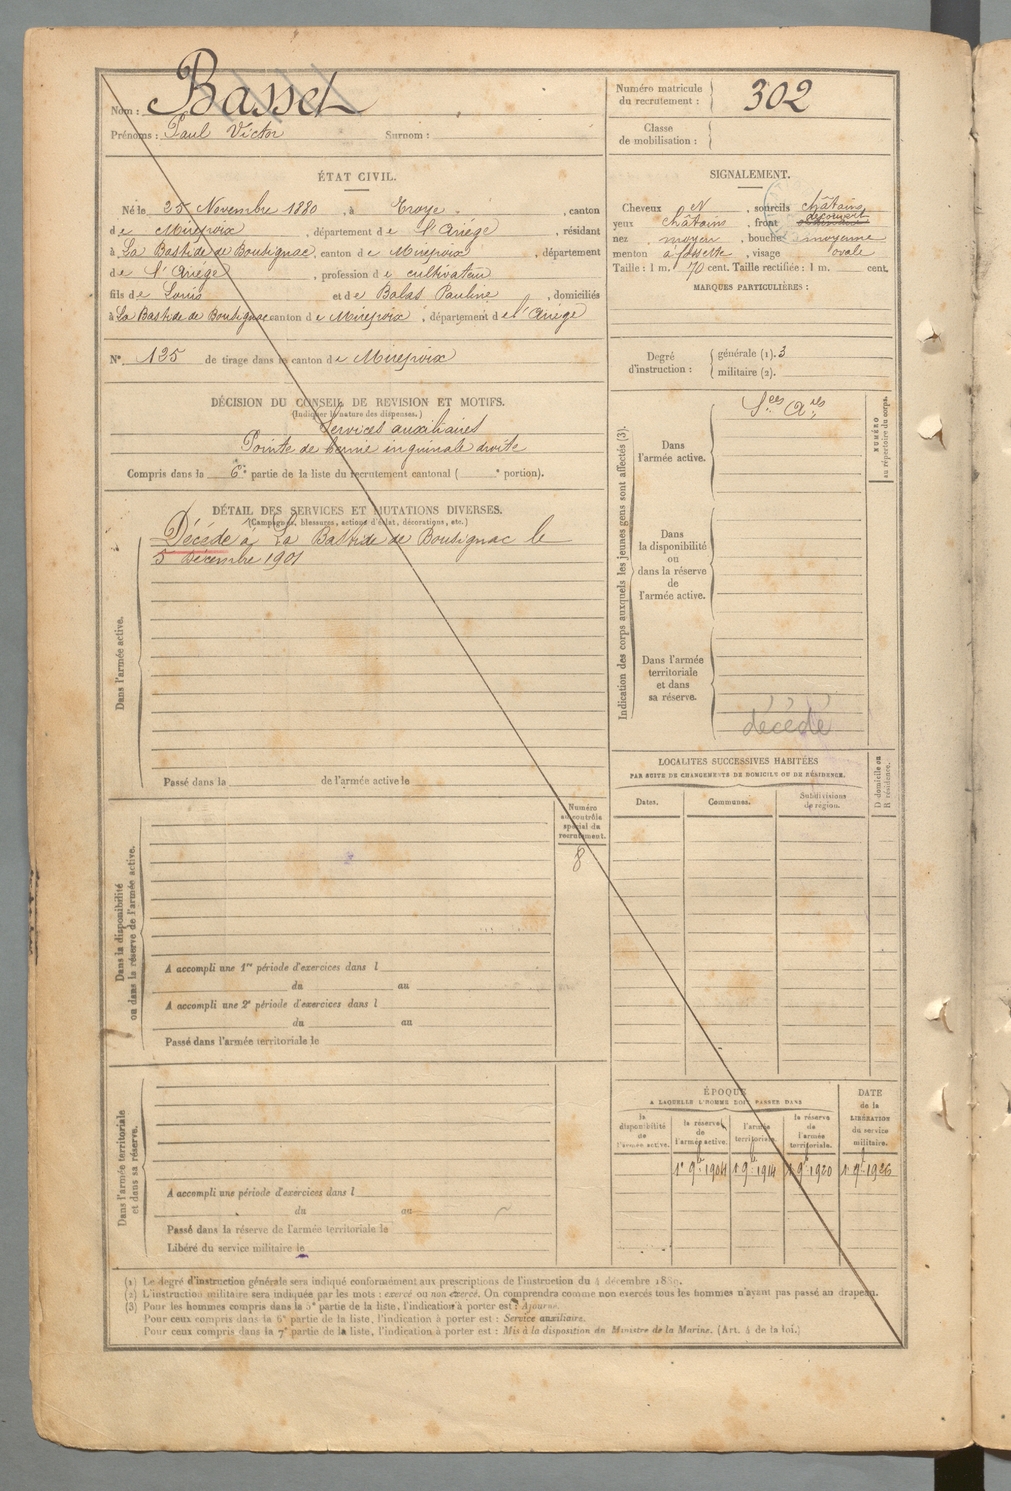 Nom : Basset
Prénoms : Paul Victor Surnom :
ÉTAT CIVIL.
Né le 25 Novembre 1880, à Troye, canton
de Mirepoix, département de l'Ariége, résidant
à La Bastide de Bousignac, canton de Mirepoix, département
de l'Ariége, profession de cultivateur
fils de Louis et de Balas Pauline, domiciliés
à La Bastide de Bousignac canton de Mirepoix, département de l'Ariége
N° 125 de tirage dans le canton de Mirepoix
DÉCISION DU CONSEIL DE REVISION ET MOTIFS.
(Indiquer la nature des dispenses.)
Services auxiliaires
Pointe de hernie inguinale droite
Compris dans la 6e partie de la liste du recrutement cantonal ( e portion).
DÉTAIL DES SERVICES ET MUTATIONS DIVERSES.
(Campagnes, blessures, actions d'éclat, décorations, etc.)
Décédé à La Bastide de Bousignac le
5 Décembre 1901
Dans l'armée active.
Passé dans la de l'armée active le
Numéro
au contrôle
spécial du
recrutement.
8
Dans la disponibilité
ou dans la réserve de l'armée active.
A accompli une 1re période d'exercices dans l
du au
A accompli une 2e période d'exercices dans l
du au
Passé dans l'armée territoriale le
Dans l'armée territoriale
et dans sa réserve.
A accompli une période d'exercices dans l
du au
Passé dans la réserve de l'armée territoriale le
Libéré du service militaire le
Numéro matricule
du recrutement : 302
Classe
de mobilisation :
SIGNALEMENT.
Cheveux N, sourcils châtains
yeux châtains, front découvert
nez moyen, bouche moyenne
menton à fossette, visage ovale
Taille : 1 m. 70 cent. Taille rectifiée : 1 m. cent.
MARQUES PARTICULIÈRES :
Degré
d'instruction :
générale (1). 3
militaire (2).
Indication des corps auxquels les jeunes gens sont affectés (3).
NUMÉRO
au répertoire du corps.
Sces Ares
Dans
l'armée active.
Dans
la disponibilité
ou
dans la réserve
de
l'armée active.
Dans l'armée
territoriale
et dans
sa réserve.
décédé
LOCALITÉS SUCCESSIVES HABITÉES
PAR SUITE DE CHANGEMENTS DE DOMICILE OU DE RÉSIDENCE.
Dates. Communes. Subdivisions
de région.
D domicile ou
R résidence.
ÉPOQUE
A LAQUELLE L'HOMME DOIT PASSER DANS
la
disponibilité
de
l'armée active.
la réserve
de
l'armée active.
l'armée
territoriale.
la réserve
de
l'armée
territoriale.
DATE
de la
LIBÉRATION
du service
militaire.
1er 9bre 1904 1er 9bre 1914 1er 9bre 1920 1er 9bre 1926
(1) Le degré d'instruction générale sera indiqué conformément aux prescriptions de l'instruction du 4 décembre 1889.
(2) L'instruction militaire sera indiquée par les mots : exercé ou non exercé. On comprendra comme non exercés tous les hommes n'ayant pas passé au drapeau.
(3) Pour les hommes compris dans la 5e partie de la liste, l'indication à porter est : Ajourné.
Pour ceux compris dans la 6e partie de la liste, l'indication à porter est : Service auxiliaire.
Pour ceux compris dans la 7e partie de la liste, l'indication à porter est : Mis à la disposition du Ministre de la Marine. (Art. 4 de la loi.)